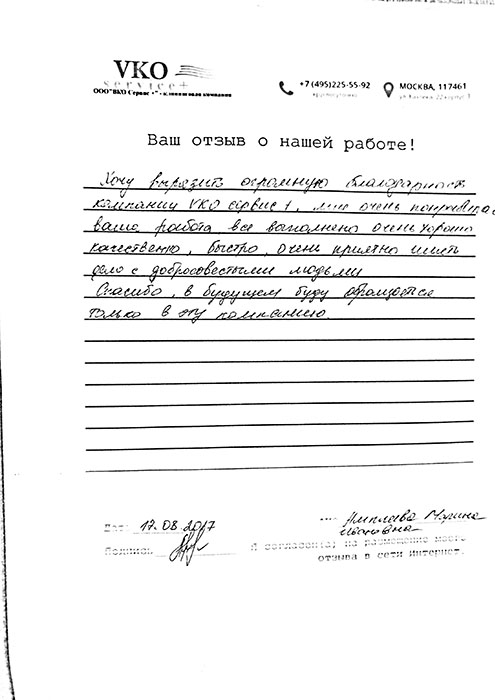 VKO
service+
ООО "ВКО Сервис +" - клининговая компания
+7 (495)225-55-92
круглосуточно
МОСКВА, 117461
Ваш отзыв о нашей работе!
Хочу выразить огромную благодарность
компании VKO сервис +, мне очень понравилась
ваша работа все выполнено очень хорошо
качественно, быстро, очень приятно иметь
дело с добросовестыми людьми
Спасибо, в будущем буду обращатся
только в эту компанию.
Дата 17.08.2017
Марина
Ивановна
Подпись
Я согласен(а) на размещение моего
отзыва в сети Интернет.